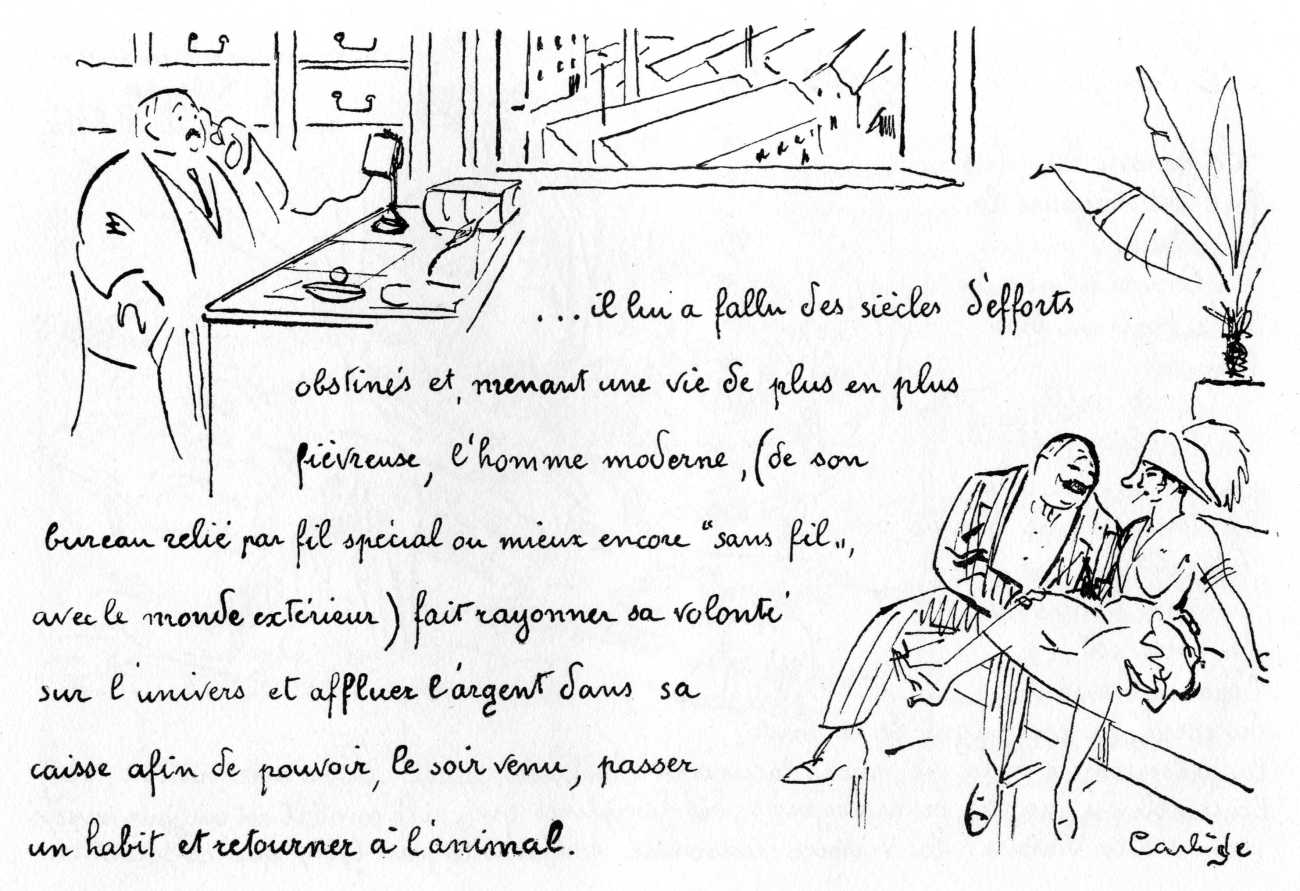 ... il lui a fallu des siècles d'efforts
obstinés et, menant une vie de plus en plus
fièvreuse, l'homme moderne, (de son
bureau relié par fil spécial ou mieux encore "sans fil",
avec le monde extérieur) fait rayonner sa volonté
sur l'univers et affluer l'argent dans sa
caisse afin de pouvoir, le soir venu, passer
un habit et retourner à l'animal.